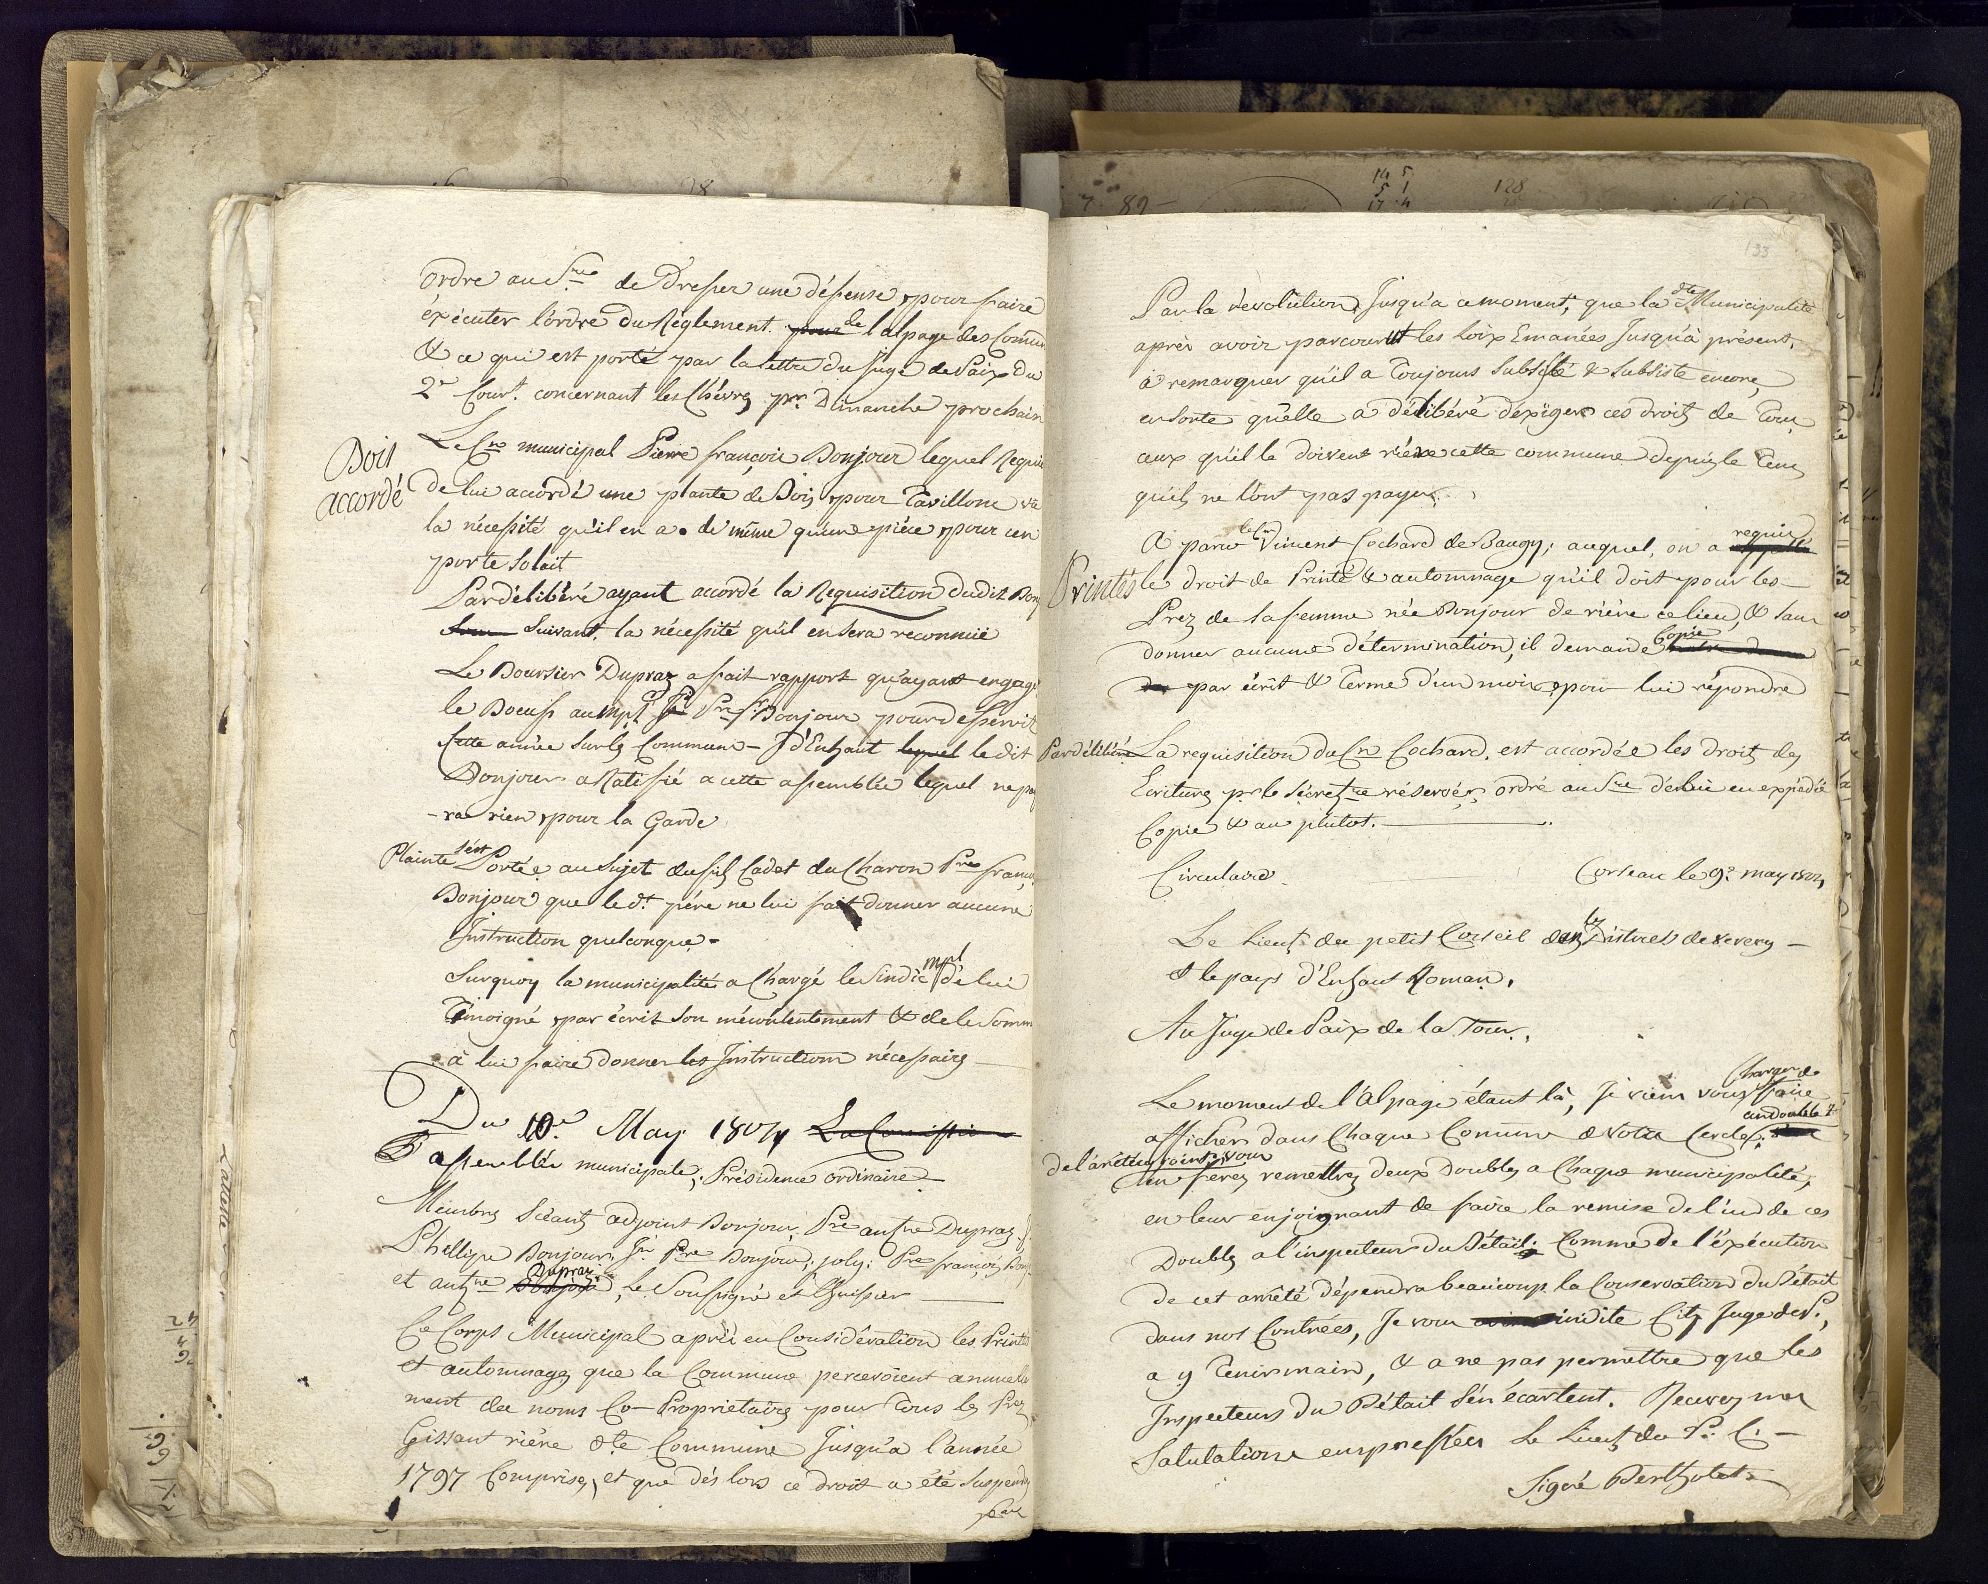 ordre au S.re de Dresser une défense pour faire
éxécuter l'ordre du Réglement de l'alpage des Comm
& ce qui est porté par la lettre du Juge de Paix du
2.e Cour.t concernant les Chévres p.r Dimanche prochain
Bois
accordé
Le C.en municipal Pierre françois Bonjour lequel Requi
de lui accordé une plante de Bois pour Tavillons vu
la nécessité qu'il en a. de même qu'une piéce pour un
porte
Par délibéré ayant accordé la Requisition dudit Bon
Suivant. la nécessité qu'il en sera reconnue
Le Boursier Dupraz a fait rapport qu'ayant engagé
le Boeuf au mpl J.n P.re f.s Bonjour pour desservir
cette année sur les Communs - d'Enhaut lequel le dit
Bonjour a Ratifié a cette assemblée lequel ne pa
-ra rien pour la Garde
Plainte s'est Portée au sujet du fils Cadet du Charon P.re franç
Bonjour que le d.t pére ne lui fait donner aucune
Instruction quelconque -
Surquoy la municipalité a Chargé le Sindic mpl de lui
Témoigné par écrit son mécontentement & de le Somm
à lui faire donner les Instructions nécessaires
Du 10.e May 1804 La Comissi
assemblée municipale, Présidence ordinaire
Membres Séants adjoint Bonjour, P.re ant.ne Dupraz
Phelippe Bonjour, J.n P.re Bonjour, joly: P.re françois Bon
et ant.ne Dupraz, le Soussigné et l'huissier
Ce Corps Municipal a pris en Considération les Printés
et automnages que la Commune percevoient annuelle
ment des noms Co-Propriétaires pour Tous les Prez
Gissant riére d.te Commune Jusqu'a l'année
1797 Comprise, et que dès lors ce droit a été suspendu
par
133
Par la révolution, Jusqu'a ce moment, que la d.te Municipalité
après avoir parcourut les Loix Emanées Jusqu'à présent,
a remarquer qu'il a Toujours subsisté & subsiste encore,
ensorte qu'elle a délibéré d'éxiger ces droits de Tous
ceux qu'il le doivent riére cette commune depuis le Tems
qu'ils ne l'ont pas payer.
A paru le C.en Vincent Cochard de Baugy; auquel, on a requis
Printés le droit de Printé & automnage qu'il doit pour les
Prez de sa femme née Bonjour de riére ce lieu, & sans
donner aucune détermination, il demande Copie
par écrit & Terme d'un mois, pour lui répondre
Par délibéré La requisition du C.en Cochard. est accordée les droits des
Ecritures p.r le Secret.re réservés, ordre au S.re en expédié
Copie & au plutot.
Circulaire. Corseau le 9.e may 1804
Le Lieut. du petit Conseil dans les Districts de vevey -
& le pays d'Enhaut Roman.
Au Juge de Paix de la Tour.
Le moment de l'Alpage étant là, Je viens vous Charger de faire
afficher dans Chaque Comune de votre Cercle, un double
de l'arrêté cy joint, vous
en ferez remettre deux Doubles a Chaque municipalité,
en leur enjoignant de faire la remise de l'un de ces
Doubles a l'inspecteur du Bétail; Comme de l'éxécution
de cet arrêté dépendra beaucoup la Conservation du Bétail
dans nos Contrées, Je vous invite Cit.n Juge de P.,
a y Tenir main, & a ne pas permettre que les
Inspecteurs du Bétail s'en écartent. Recevez mes
Salutations empressées Le Lieut. du P. C. -
Signé Bertholet